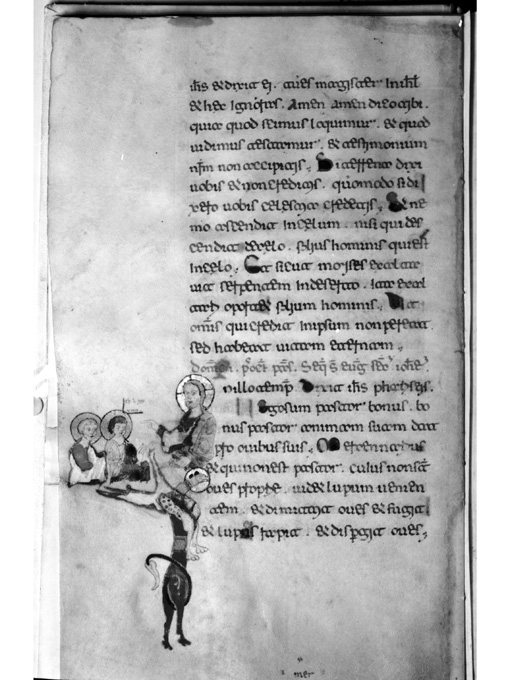 ihs & dixit ei. tu es magister in ihl
& hec ignoras. Amen amen dico tibi.
quia quod scimus loquimur. & quod
uidimus testamur. & testimonium
nrm non accipitis. Si terrena dixi
uobis & non creditis. quomodo si di
xero uobis celestia credetis. Et ne
mo ascendit in celum. nisi qui des
cendit de celo. filius hominis qui est
in celo. Et sicut moyses exalta
uit serpentem in deserto. ita exal
tari oportet filium hominis. Ut
omis qui credit in ipsum non pereat
sed habeat uitam eternam.
p oct pas. Seq s eug sec iohe
In illo temp Dixit ihs phariseis.
Ego sum pastor bonus. bo
nus pastor animam suam dat
pro ouibus suis. Mercennarius
& qui non est pastor. cuius non st
oues proprie. uidet lupum uenien
tem. & dimittit oues & fugit.
& lupus rapit. & dispergit oues.
mer